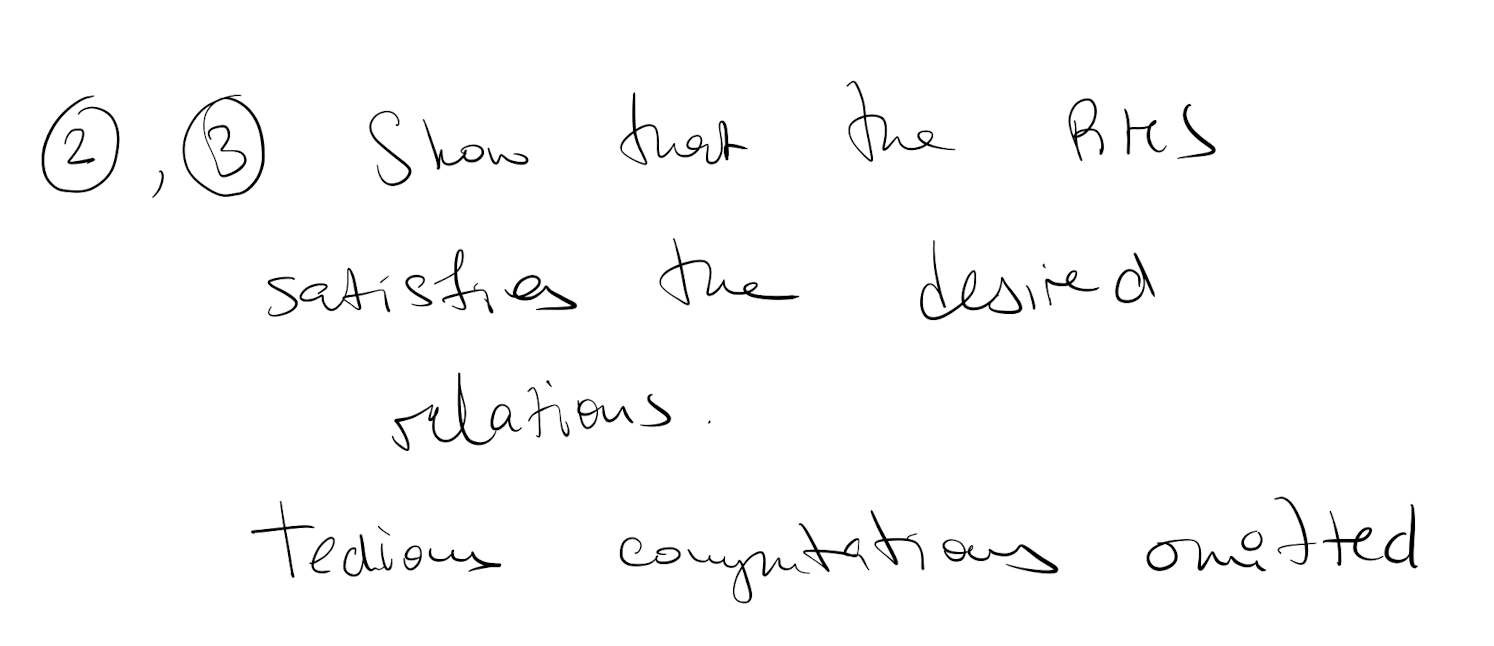 ②, ③ Show that the RHS
satisfies the desired
relations.
Tedious computations omitted